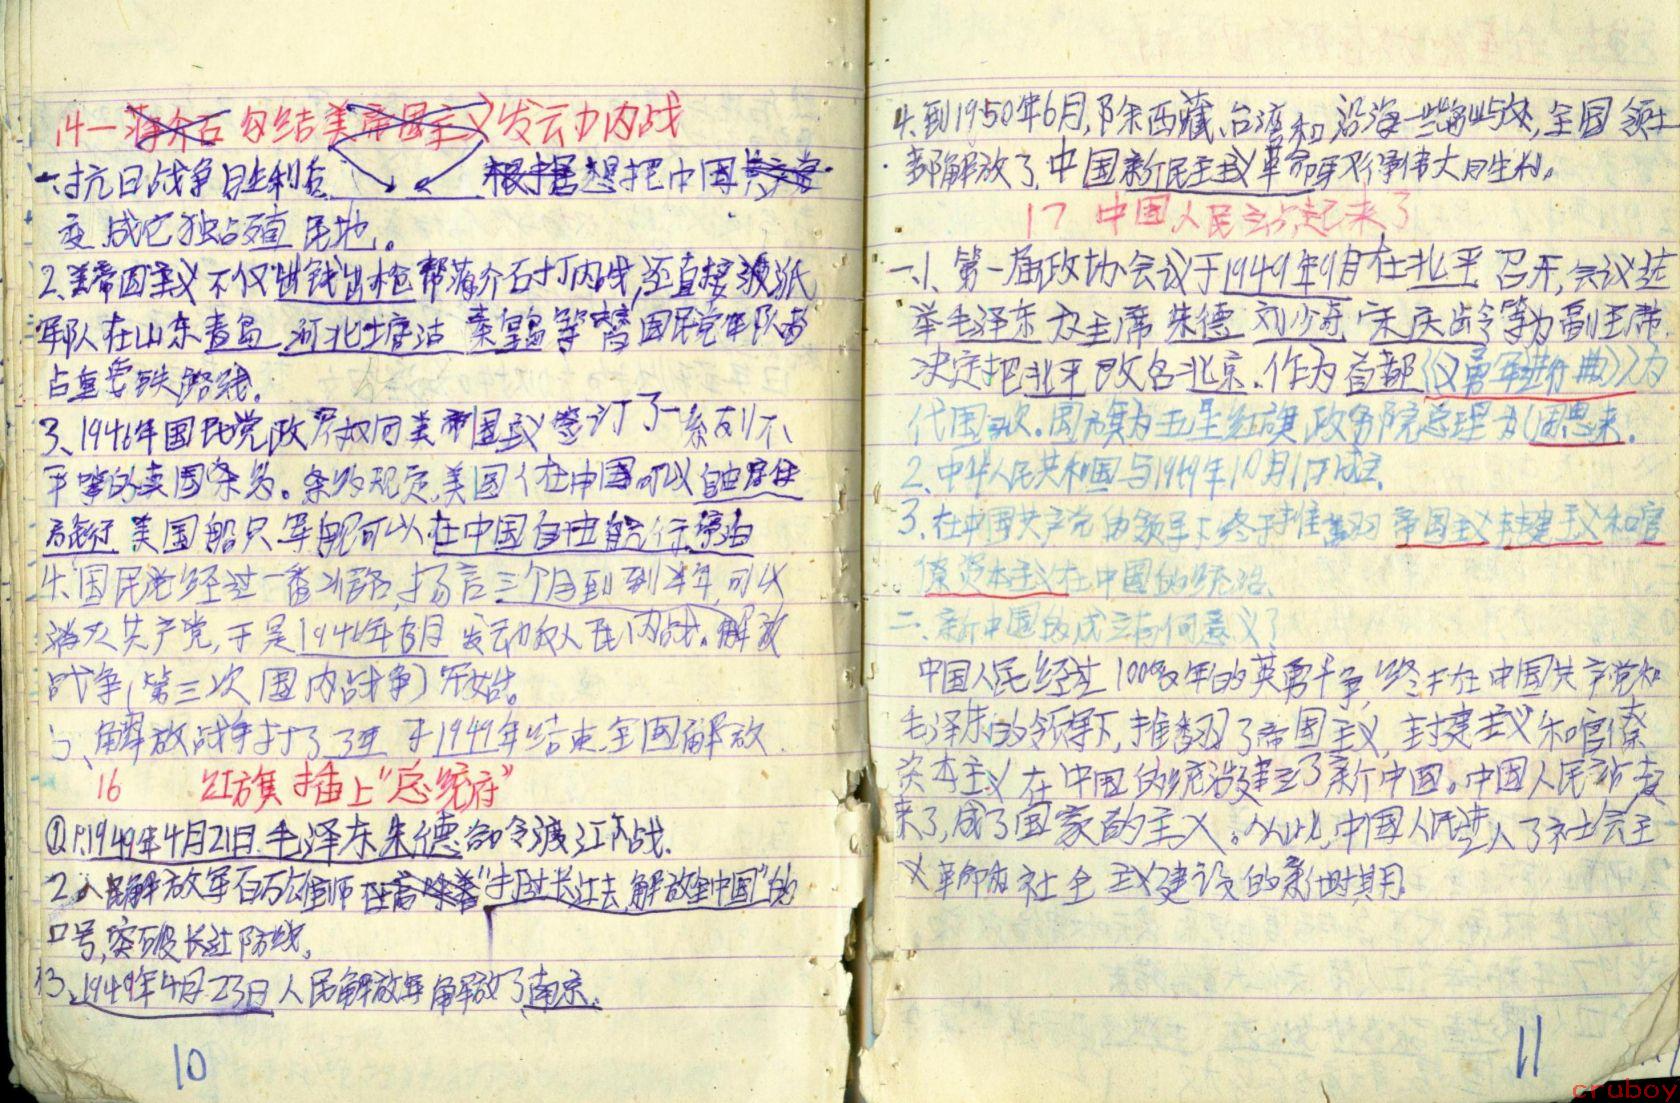 14一蒋介石勾结美帝国主义发动内战
一、1.抗日战争胜利后 根据想把中国共产党
变成它独占殖民地。
2、美帝国主义不仅出钱出枪帮蒋介石打内战,还直接派
军队在山东青岛 河北塘沽 秦皇岛等 替国民党军队
占重要铁路线。
3、1946年国民党政府 同美帝国主义签订了一系列不
平等的卖国条约。条约规定,美国人在中国可以自由居住
旅行 美国船只 军舰可以在中国自由航行停泊
4.国民党经过一番准备,扬言三个月到 到半年,可以
消灭共产党,于是1946年6月发动 人民内战。解放
战争(第三次国内战争)开始。
5、解放战争打了 于1949年结束.全国解放.
16 红旗插上“总统府”
①1.1949年4月21日.毛泽东朱德命令渡江作战.
2.人民解放军百万雄师 “打过长江去,解放全中国”的
口号,突破长江防线。
3、1949年4月23日人民解放军解放了南京.
10
4.到1950年6月,除西藏、台湾和沿海一些岛屿外,全国领土
都解放了,中国新民主主义革命取得伟大胜利。
17 中国人民站起来了
一、1.第一届政协会议于1949年9月在北平召开,会议选
举毛泽东为主席 朱德 刘少奇 宋庆龄等为副主席
决定把北平改名北京.作为首都《义勇军进行曲》为
代国歌.国旗为五星红旗,政务院总理为周恩来.
2、中华人民共和国与1949年10月1日成立.
3、在中国共产党的领导下终于推翻 帝国主义 封建主义和官
僚资本主义在中国的统治.
二、新中国的成立有何意义?
中国人民经过100多年的英勇斗争,终于在中国共产党和
毛泽东的领导下,推翻了帝国主义,封建主义和官僚
资本主义在中国的统治建立了新中国。中国人民站起
来了,成了国家的主义。从此,中国人民进入了社会主
义革命和社会主义建设的新时期.
11
cruboy